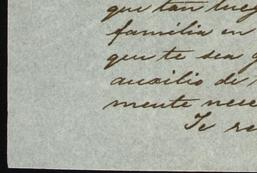 que tan lueg
familia en
que te sea g
auxilio di
mente nese
Te re